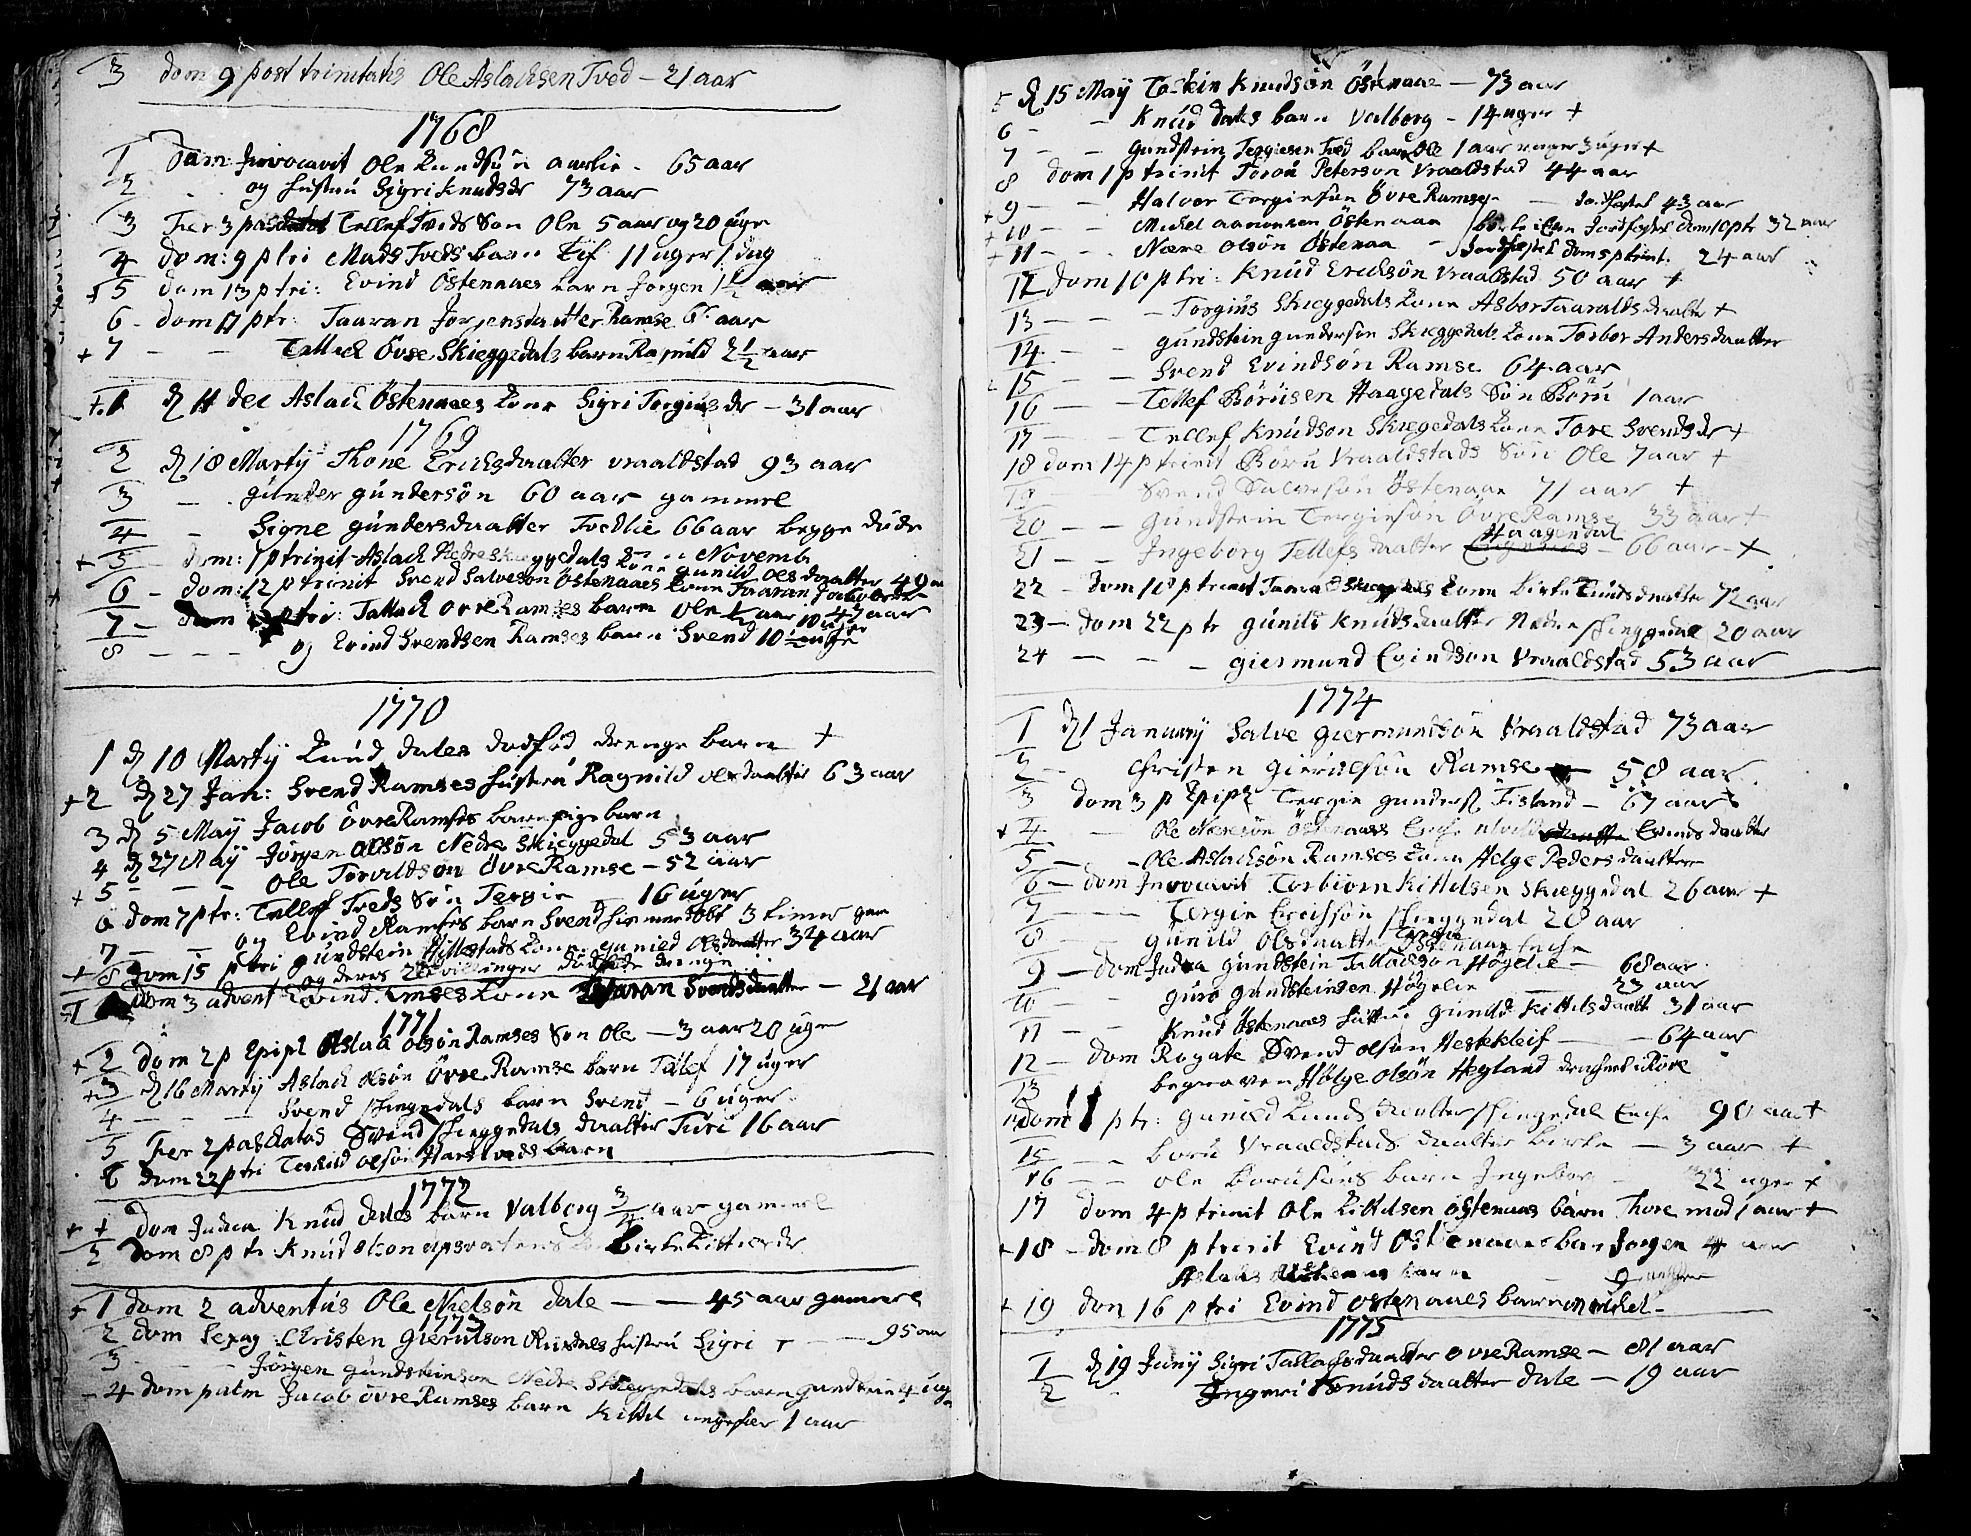 3 dom 9 post trinitatis Ole Aslachsen Tved – 21 aar
1768
1 Dom: Invocavit Ole Knudsøn aaslie – 65 aar
2 og hustru Sigri Knudsdr 73 aar
3 Fer 3 pasc Tellef Tveds Søn Ole 5 aar og 20 uger
4 dom: 9 p tri Mads Tveds barn Lif 11 uger 1 dag
+ 5 dom 13 p tri: Evind Östenaaes barn Jorgen 1½ aar
6 - dom 17 ptr: Taaran Jorgensdaatter Ramse 6 aar
+ 7 – – Tallach Övre Skieggedals barn Ragnild 2½ aar
+ 1 d 4 dec Aslach Östenaaes kone Sigri Torgiusdr – 31 aar
1769
2 d 18 Martij Thone Ericksdaatter Vraaldstad 93 aar
3 – Gunder Gundersön 60 aar gammel
4 – Signe Gundersdaatter Tvedlie 66 aar begge döde
+ 5 dom: 1 p trinit Aslach Nedre Skieggedals kone Gunild Olsdaatter 40
6 - dom: 12 p trinit Svend Salvesön Östenaaes kone Taaran 43 aar
7 – dom ptri: Tallach Övre Ramses barn Ole ½ aar 10 uger
8 – – – og Evind Svendsen Ramses barn Svend 10 uger
1770
1 d 10 Martij Knud Dales dødfød drenge barn +
+ 2 d 27 Jan: Svend Ramses hustru Ragnild Olesdaatter 63 aar
3 d 5 Maij Jacob Övre Ramses barn pige barn
4 d 27 Maij Jörgen Olsön Nedre Skieggedal 53 aar
+ 5 – – – Ole Torvildsön Övre Ramse – 52 aar
6 dom 7 ptr: Tellef Tveds Sön Tergie – 16 uger
7 – – og Evind Ramses barn Svend hiemmedöbt 3 timer gam
+ 8 dom 15 p tri Gundstein Hillestads kone Gunild Olsdaatter 34 aar
og deres 2 tvillinger dödfödte drenge
+ 1 dom 3 advent Evind Ramses kone Taaran Svendsdaatter – 21 aar
1771
+ 2 dom 2 p Epiph Aslaa Olsön Ramses Sön Ole – 3 aar 20 uger
+ 3 d 16 Martij Aslach Olsön Övre Ramse barn Tellef 17 uger
4 – – Svend Skieggedals barn Svend – 6 uger
5 Fer 2 paschatos Svend Skieggedals daatter Turi 16 aar
6 dom 22 p tri Terkild Olsön Hartveds barn
1772
+ + dom Judica Knud Dales barn Valborg ¾ aar gammel
2 dom 8 p tr Knud Olson Birte
+ 1 dom 2 adventus Ole Nielsön Dale – – 45 aar gammel
1773
2 dom Sexag: Christen Gierulson hustru Sigri – – 95 aar
3 – – Jörgen Gundsteinson Nedre Skieggedals barn Gundtein 4 uger
- 4 dom palm Jacob Övre Ramses barn Kittil ungefær 1 aar
5 d 15 Maij Knudsön Östenaae – 73 aar
6 – – Knud Dales barn Valborg – 14 uger +
7 – – Gundstein Tergiesen Tved barn Ole 1 aar 3 uger +
8 dom 1 p trinit Torou Peterson Vraaldstad 44 aar
9 – – Halvor Torginsön Övre Ramse – 43 aar
+ 10 – – Mickel Aanonson Östenaae Jordfæstet dom 10 ptr 32 aar
+ 11 – – Nære Olsön Östenaa – Jordfæstet dom 5 p trinit. 24 aar
12 dom 10 p tri: Knud Erickson Vraaldstad 50 aar +
13 – – – Torgius Skieggedals kone Asbor Taaraldsdaatter +
14 – – Gundstein Gundersön Skieggedals kone Torbor Andersdaatter
15 – – Svend Evindsön Ramse 64 aar
16 – – Tellef Börüsen Haagedals Sön Börü 1 aar
17 – – Tellef Knudson Skiegedals kone Tore Svendsdr +
18 dom 14 p trinit Börü Vraaldstads Sön Ole 7 aar +
19 Svend Salvesön Östenaae 71 aar +
20 – – Gundstein Tergiesön Övre Ramse 33 aar +
21 – – Ingeborg Tellefsdaatter Haagendal – 66 aar – +
22 – dom 18 p trinit Skieggedals kone Birte Knudsdaatter 72 aar
23 – dom 22 p tr Gunild Knudsdaatter Nedre Skieggedal 20 aar
24 – – – Giermund Evindson Vraaldstad 53 aar
1774
1 d 1 January Salve Giermundsön Vraaldstad 73 aar
2 – Christen Gierulsön Ramse – 58 aar
3 dom 3 p Epiph Tergie Gunders Fisland – 67 aar
+ 4 – Ole Næresön Östenaaes Enche Evindsdaatter
5 – – Ole Aslachsön Ramses kone Helge Pedersdaatter
6 – dom Invocavit Torbiörn Kittelsen Skieggedal 26 aar +
7 – – – Tergie Erichsön Skieggedal 28 aar
8 – – Gunild Olsdaatter Östenaae Enche
9 – dom Judica Gundstein Tallachsön Högelie – 68 aar
10 – – Guro Gundsteinsen Högelie – 23 aar
11 – – Knud Östenaaes hustru Gunild Kittelsdaatt 31 aar
12 – dom Rogate Svend Olsön Hestekleif – – 64 aar
13 begraven Helge Olsön Hegland
14 dom 1 p tr: Gunild Knudsdaatter Skieggedal Enche 90 aar +
15 – – Börü Vraaldstads daatter Birte – 3 aar +
16 – – Ole Börusöns barn Ingebor – 22 uger +
17 dom 4 p trinit Ole Kittelsen Östenaaes barn Thore mod 1 aar +
- 18 – dom 8 p trinit Evind Östenaaes barn Jorgen 4 aar
Aslachs barn
+ 19 dom 16 p tri Evind Östenaaes barn Michel –
1775
1 d 19 Junij Sigri Tallachsdaatter Övre Ramse – 81 aar
2 Ingeri Knudsdaatter Dale – 19 aar